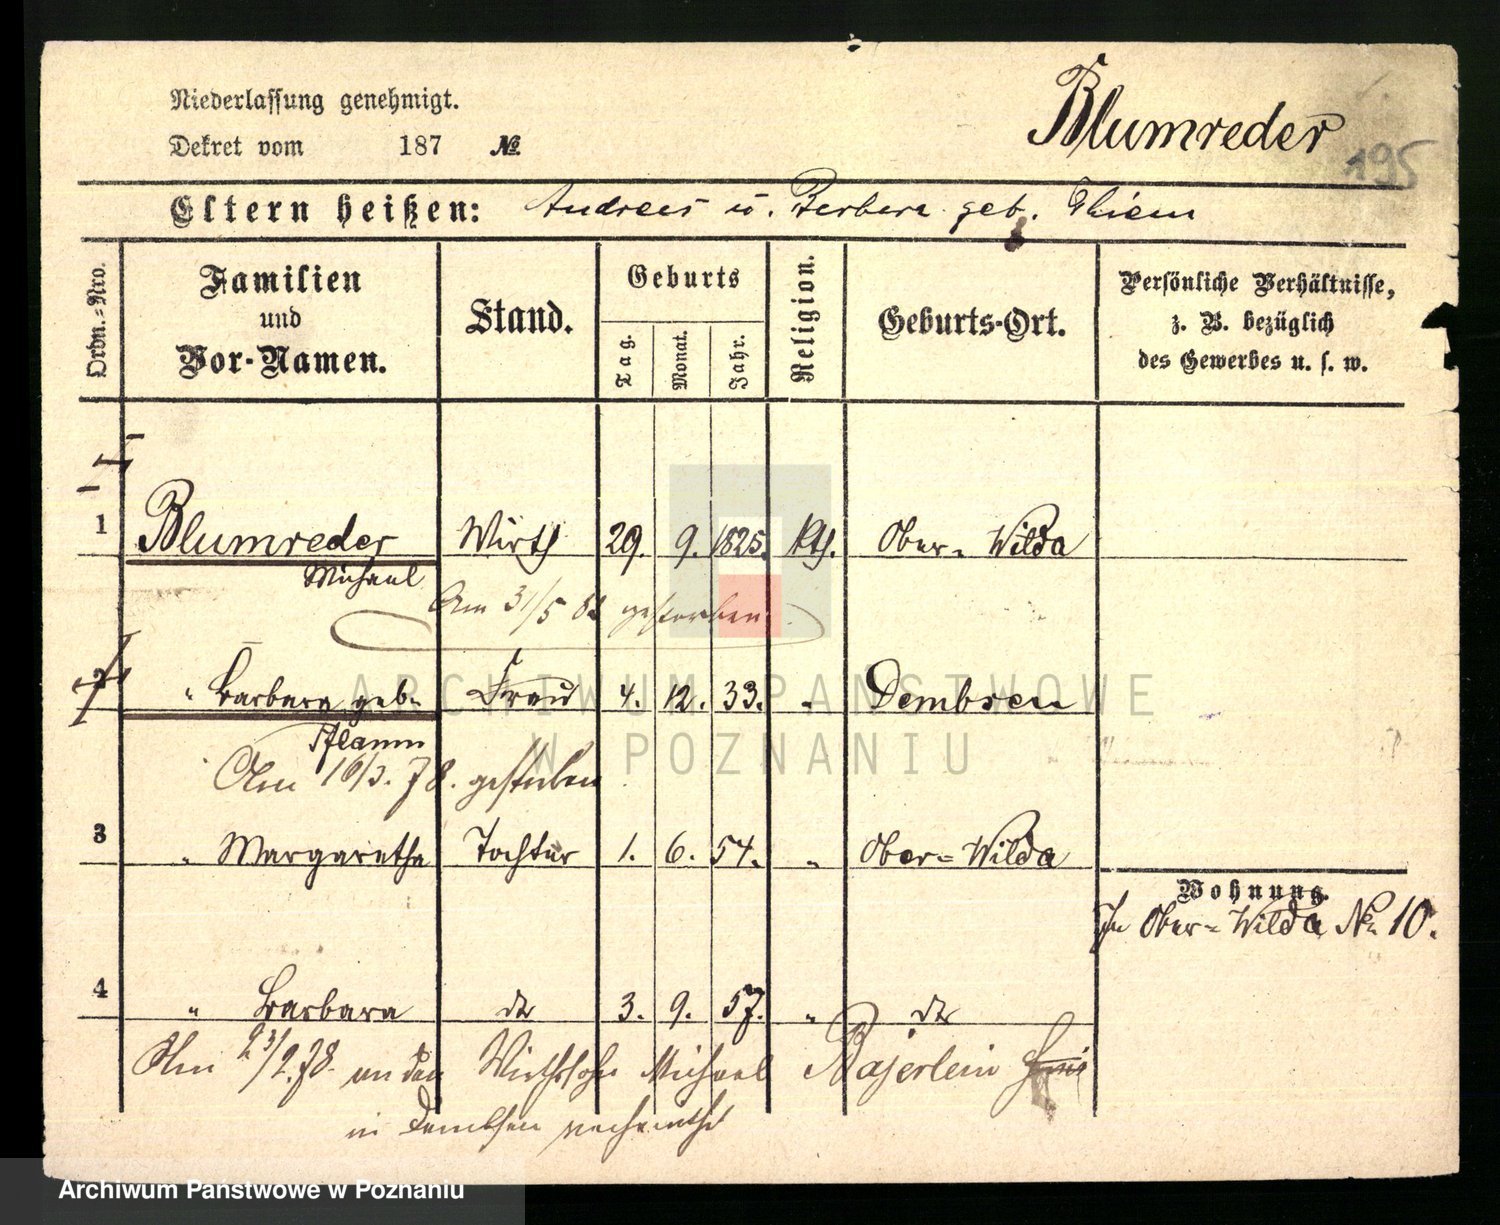 Niederlassung genehmigt.
Dekret vom 187 №
Blumreder
195
Eltern heißen: Andreas u. Barbara geb. Thiem
Ordn.-Nro.
Familien und Vor-Namen.
Stand.
Geburts
Tag. Monat. Jahr.
Religion.
Geburts-Ort.
Persönliche Verhältnisse, z. B. bezüglich des Gewerbes u. s. w.
1 Blumreder Wirth 29. 9. 1825. kth. Ober-Wilda
Michael
Am 31/5 gestorben
2 " Barbara geb. Frau 4. 12. 33. " Dembsen
Pflaum
Am 16/3. 78. gestorben
3 " Margaretha Tochter 1. 6. 54. " Ober-Wilda
Wohnung.
In Ober-Wilda No 10.
4 " Barbara dto 3. 9. 57. " dto
Am 23/2. 78. an den Wirthssohn Michael Bajerlein
in Dembsen verheirathet
ARCHIWUM PAŃSTWOWE
W POZNANIU
Archiwum Państwowe w Poznaniu